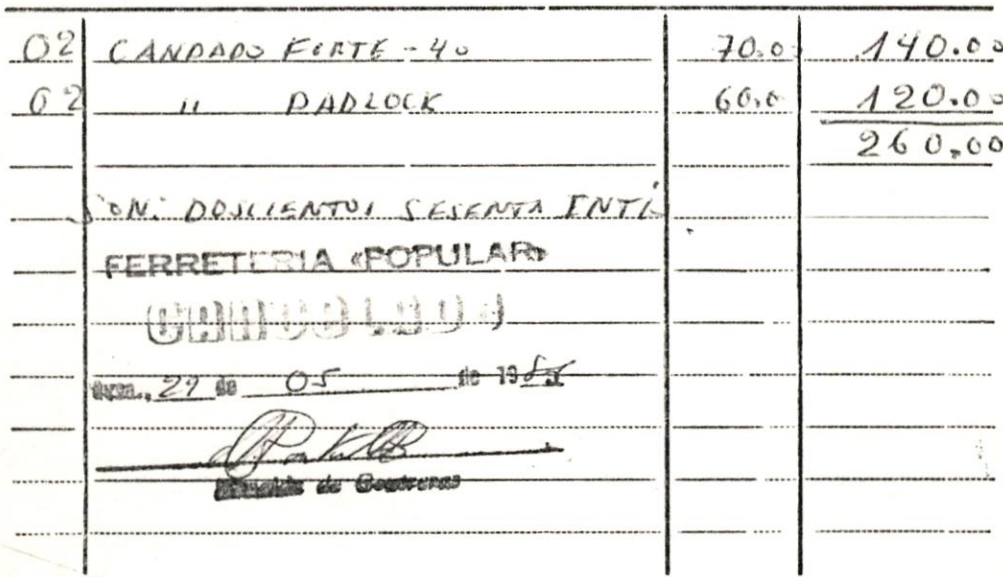 02 CANDADO FORTE-40 70.0 140.00
02 " PADLOCK 60.0 120.00
260.00
SON: DOSCIENTOS SESENTA INTIS
FERRETERIA «POPULAR»
CANCELADO
de 05 de 198
de Contreras